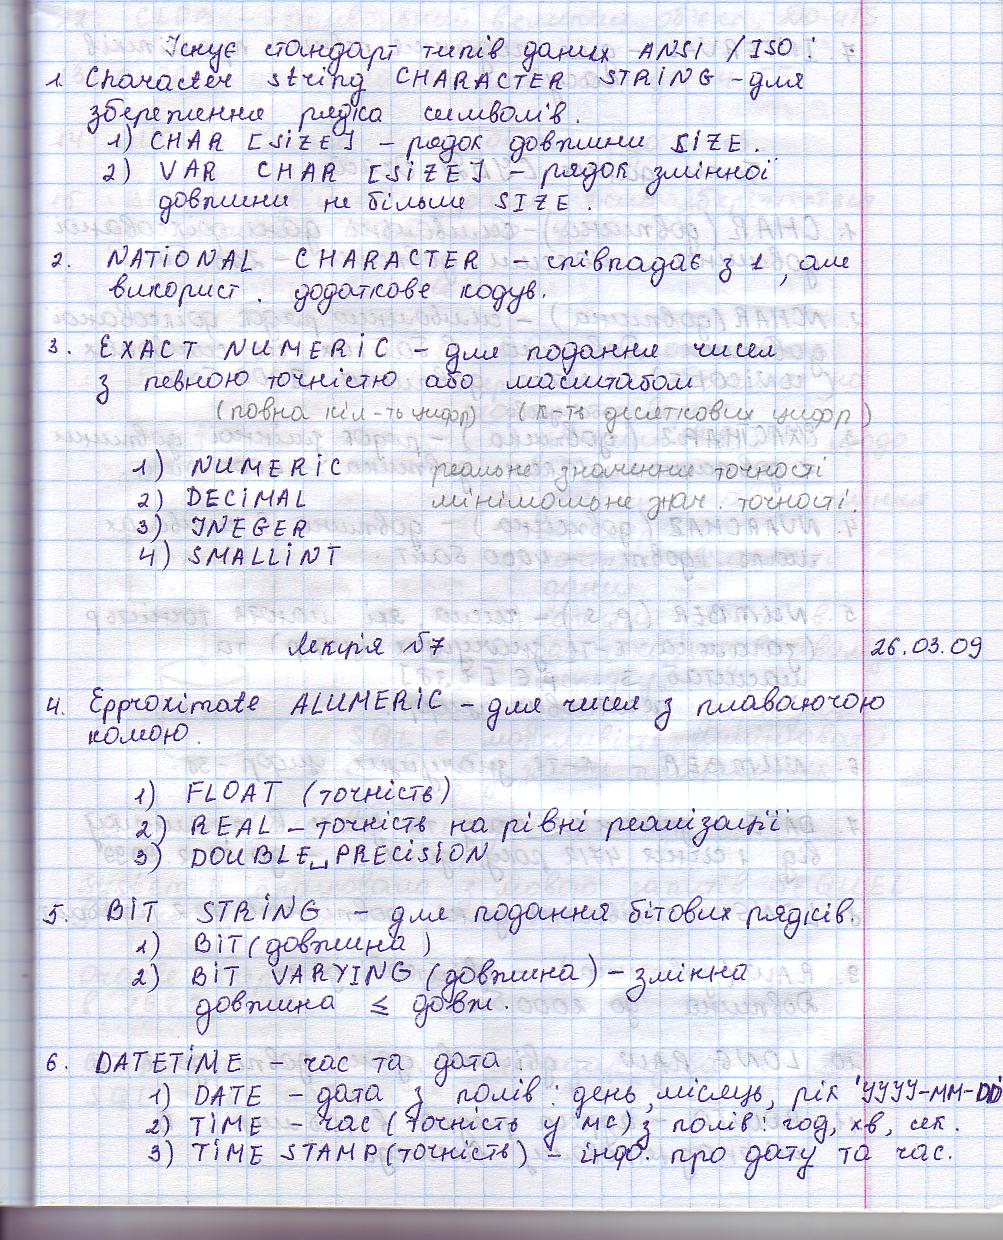 Існує стандарт типів даних ANSI / ISO:
1. Character string CHARACTER STRING - для
збереження рядка символів.
1) CHAR [SIZE] - рядок довжини SIZE.
2) VAR CHAR [SIZE] - рядок змінної
довжини не більше SIZE.
2. NATIONAL CHARACTER - співпадає з 1, але
використ. додаткове кодув.
3. EXACT NUMERIC - для подання чисел
з певною точністю або масштабом
(повна кіл-ть цифр) (к-ть десяткових цифр)
1) NUMERIC реальне значення точності
2) DECIMAL мінімальне знач. точності.
3) INEGER
4) SMALLINT
Лекція №7 26.03.09
4. Epproximate ALUMERIC - для чисел з плаваючою
комою.
1) FLOAT (точність)
2) REAL - точність на рівні реалізації
3) DOUBLE␣PRECISION
5. BIT STRING - для подання бітових рядків.
1) BIT (довжина)
2) BIT VARYING (довжина) - змінна
довжина ≤ довж.
6. DATETIME - час та дата
1) DATE - дата з полів: день, місяць, рік 'YYYY-MM-DD'
2) TIME - час (точність у мс) з полів: год, хв, сек.
3) TIME STAMP (точність) - інф. про дату та час.